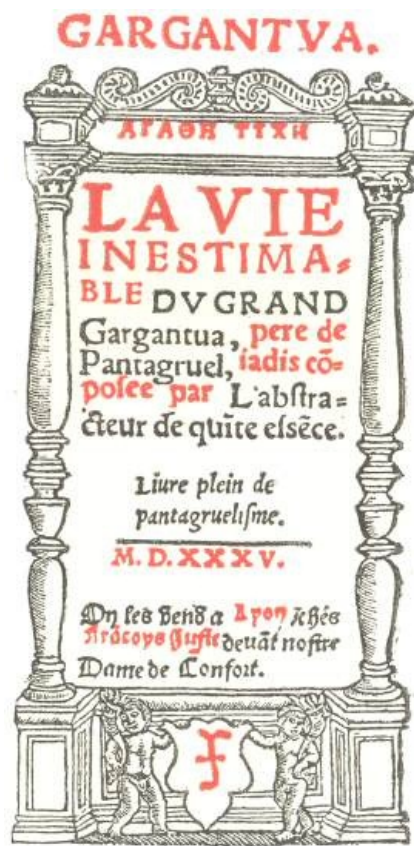 GARGANTVA.
ΑΓΑΘΗ ΤΥΧΗ
LA VIE
INESTIMA-
BLE DV GRAND
Gargantua, pere de
Pantagruel, iadis cō-
posee par L'abstra=
cteur de quīte essēce.
Liure plein de
pantagruelisme.
M. D. XXXV.
On les vend a Lyon, chés
Frācoys Juste devāt nostre
Dame de Confort.
F